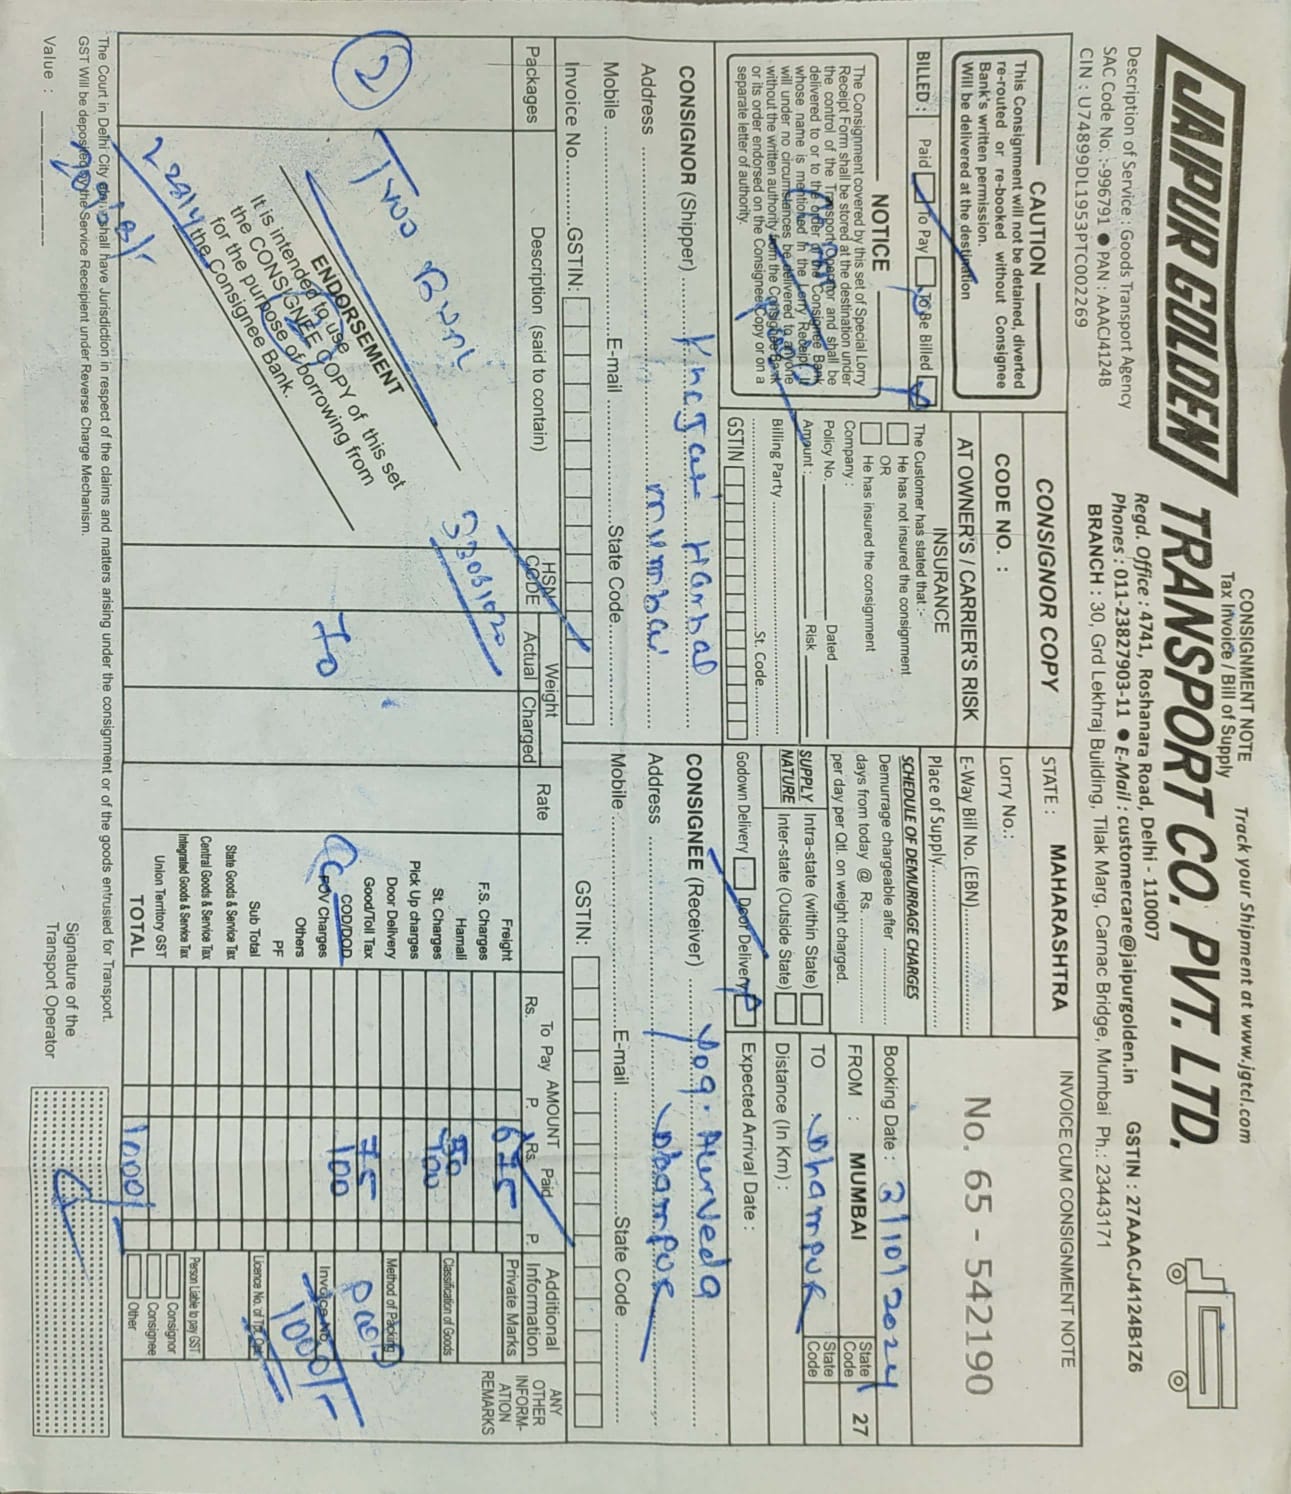 CONSIGNMENT NOTE
Tax Invoice / Bill of Supply
Track your Shipment at www.jgtcl.com
JAIPUR GOLDEN TRANSPORT CO. PVT. LTD.
Regd. Office : 4741, Roshanara Road, Delhi - 110007
Phones : 011-23827903-11 ● E-Mail : customercare@jaipurgolden.in
GSTIN : 27AAACJ4124B1Z6
Description of Service : Goods Transport Agency
SAC Code No. :-996791 ● PAN : AAACJ4124B
CIN : U74899DL1953PTC002269
BRANCH : 30, Grd Lekhraj Building, Tilak Marg, Carnac Bridge, Mumbai Ph.: 23443171
CAUTION
This Consignment will not be detained, diverted
re-routed or re-booked without Consignee
Bank's written permission.
Will be delivered at the destination
BILLED : Paid To Pay To Be Billed
NOTICE
The Consignment covered by this set of Special Lorry
Receipt Form shall be stored at the destination under
the control of the Transport Operator and shall be
delivered to or to the order of the Consignee Bank
whose name is mentioned in the Lorry Receipt. It
will under no circumstances be delivered to anyone
without the written authority from the Consignee Bank
or its order endorsed on the Consignee Copy or on a
separate letter of authority.
CONSIGNOR COPY
CODE NO. :
AT OWNER'S / CARRIER'S RISK
INSURANCE
The Customer has stated that :-
He has not insured the consignment
OR
He has insured the consignment
Company :
Policy No. Dated
Amount : Risk
Billing Party
St. Code
GSTIN
STATE : MAHARASHTRA
Lorry No.:
E-Way Bill No. (EBN)
Place of Supply
SCHEDULE OF DEMURRAGE CHARGES
Demurrage chargeable after
days from today @ Rs.
per day per Qtl. on weight charged.
SUPPLY NATURE
Intra-state (within State)
Inter-state (Outside State)
Godown Delivery Door Delivery
INVOICE CUM CONSIGNMENT NOTE
No. 65 - 542190
Booking Date : 31/01/2024
FROM : MUMBAI State Code 27
TO Dhampur State Code
Distance (In Km) :
Expected Arrival Date :
CONSIGNOR (Shipper)
Address mumbai
Mobile E-mail State Code
Invoice No. GSTIN:
CONSIGNEE (Receiver) Yog. Aurveda
Address Dhampur
Mobile E-mail State Code
GSTIN:
Packages
Description (said to contain)
HSN CODE
Weight
Actual Charged
Rate
AMOUNT
To Pay Paid
Rs. P. Rs. P.
Additional Information
ANY OTHER INFORM- ATION REMARKS
2
Two Bund
33051020
70
ENDORSEMENT
It is intended to use
the CONSIGNEE COPY of this set
for the purpose of borrowing from
the Consignee Bank.
Freight 675
F.S. Charges
Hamali 50
St. Charges 100
Pick Up charges
Door Delivery
Good/Toll Tax 75
COD/DOD 100
FOV Charges
Others
PF
Sub Total
State Goods & Service Tax
Central Goods & Service Tax
Integrated Goods & Service Tax
Union Territory GST
TOTAL 1000/
Private Marks
Classification of Goods
Method of Packing
Paid
Invoice No.
1000/-
Licence No. of Tpt. Opt.
Person Liable to pay GST
Consignor
Consignee
Other
The Court in Delhi City only shall have Jurisdiction in respect of the claims and matters arising under the consignment or of the goods entrusted for Transport.
GST Will be deposited by the Service Receipient under Reverse Charge Mechanism.
Value :
Signature of the
Transport Operator